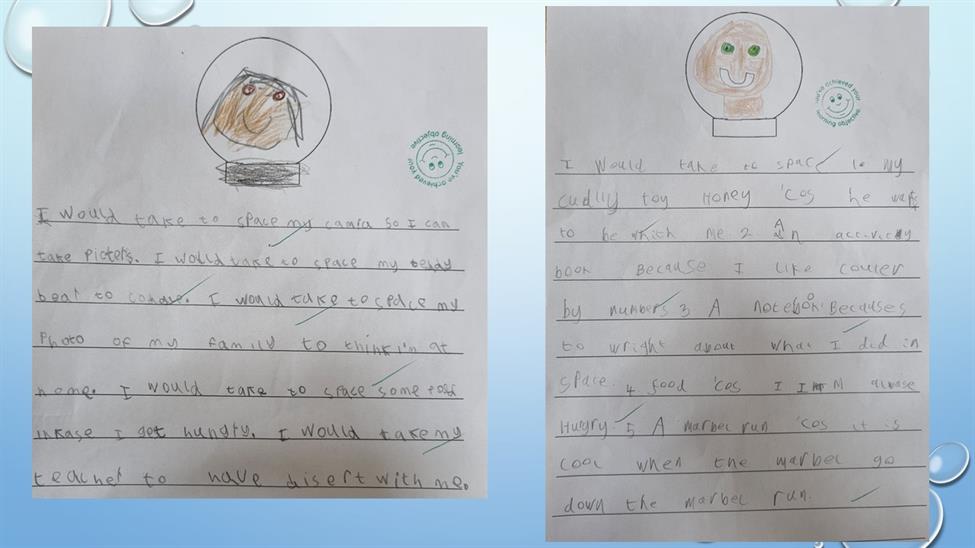 You've achieved your
learning objective
I would take to space my camra so I can
take picters. I would take to space my teddy
bear to . I would take to space my
Photo of my family to think i'm at
home. I would take to space some
inkase I get hungry. I would take my
teacher to have disert with me.
You've achieved your
learning objective
I would take to space 1. my
cudlly toy Honey 'cos he
to be with me 2 A
book Because I like couler
by numbers 3 A notebook Becauses
to wright about what I did in
space. 4 food 'cos I
Hungry 5 A marbel run 'cos it is
cool when the marbel go
down the marbel run.